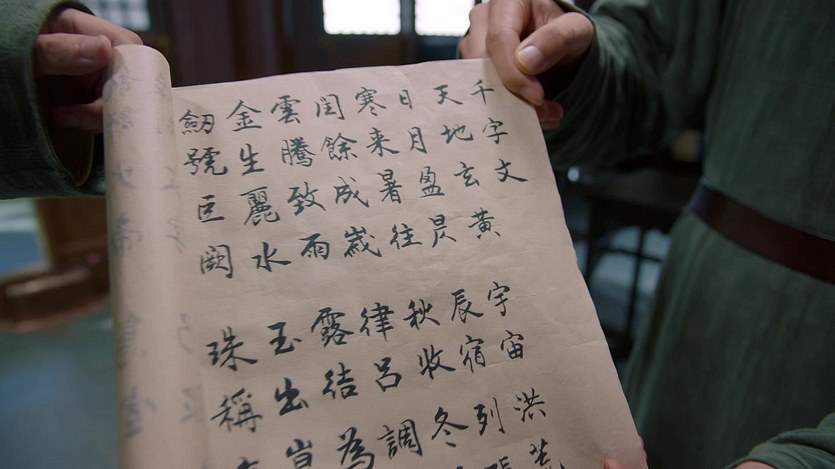 千字文
天地玄黃 宇宙洪荒
日月盈昃 辰宿列張
寒来暑往 秋收冬
閏餘成歲 律呂調
雲騰致雨 露結為
金生麗水 玉出崑
劒號巨闕 珠稱